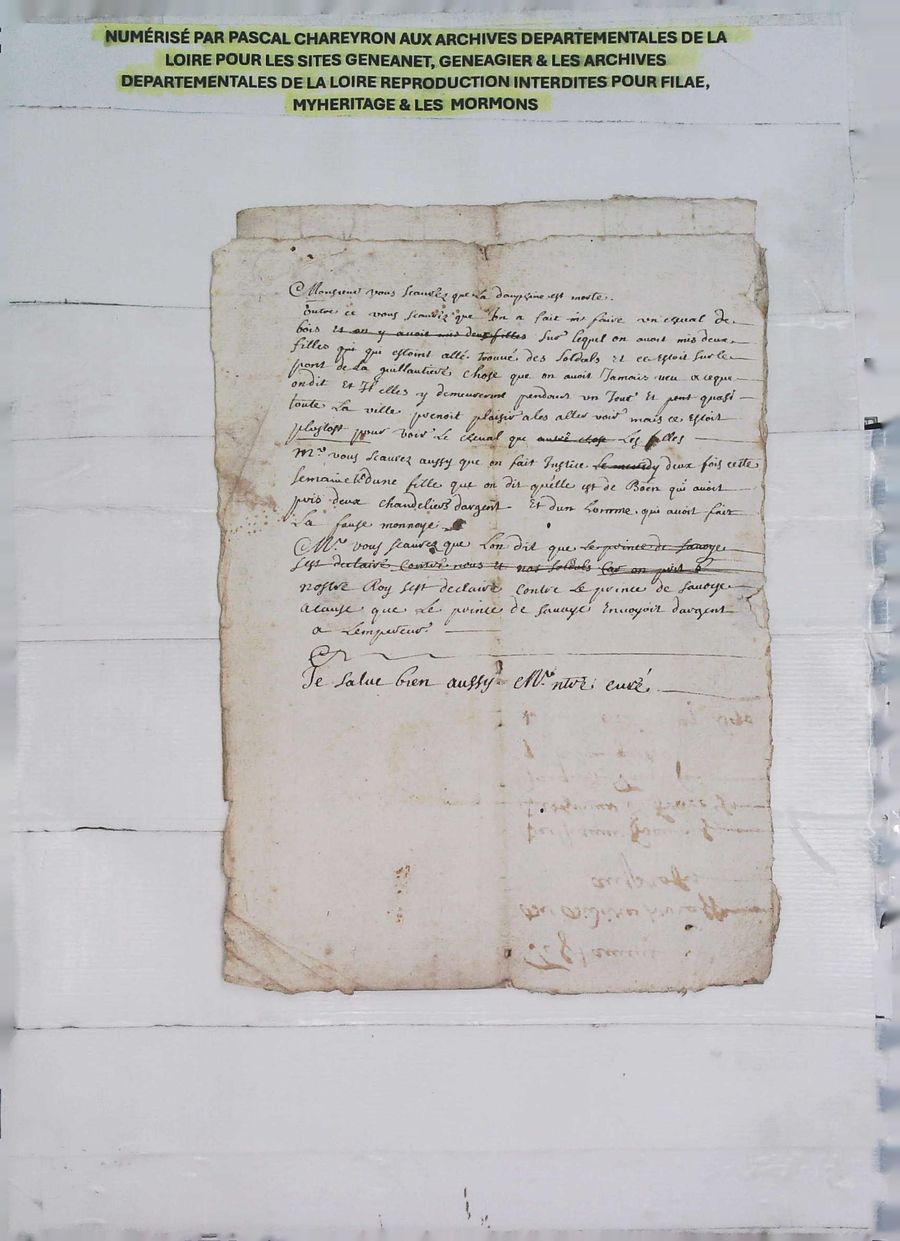 NUMÉRISÉ PAR PASCAL CHAREYRON AUX ARCHIVES DEPARTEMENTALES DE LA
LOIRE POUR LES SITES GENEANET, GENEAGIER & LES ARCHIVES
DEPARTEMENTALES DE LA LOIRE REPRODUCTION INTERDITES POUR FILAE,
MYHERITAGE & LES MORMONS
Monsieur vous scaurez que La dauphine est morte.
outre ce vous scaurez que Lon a fait faire un cheval de
bois et on y avoit mis deux filles sur lequel on avoit mis deux
filles qui qui estoint allé trouvé des soldats et ce estoit sur le
pont de La guillautiere chose que on avoit Jamais veu a ceque
ondit Et elles y demeurerent pendant un Jour et quasi
toute La ville prenoit plaisir ales aller voir mais ce estoit
plustost pour voir Le cheval que autre chose Les filles
Mr vous scaurez aussy que on fait Justice deux fois ceste
semaine dune fille que on dit quelle est de Boën qui avoit
pris deux chandeliers dargent Et dun homme qui avoit fait
La fause monnoye
Mr vous scaurez que Lon dit que Le prince de savoye
sest declairé contre nous et nos soldats car on
nostre Roy sest declairé contre Le prince de savoye
acause que Le prince de savoye Envoyoit dargent
a Lempereur
Je salue bien aussy Mr ntre curé